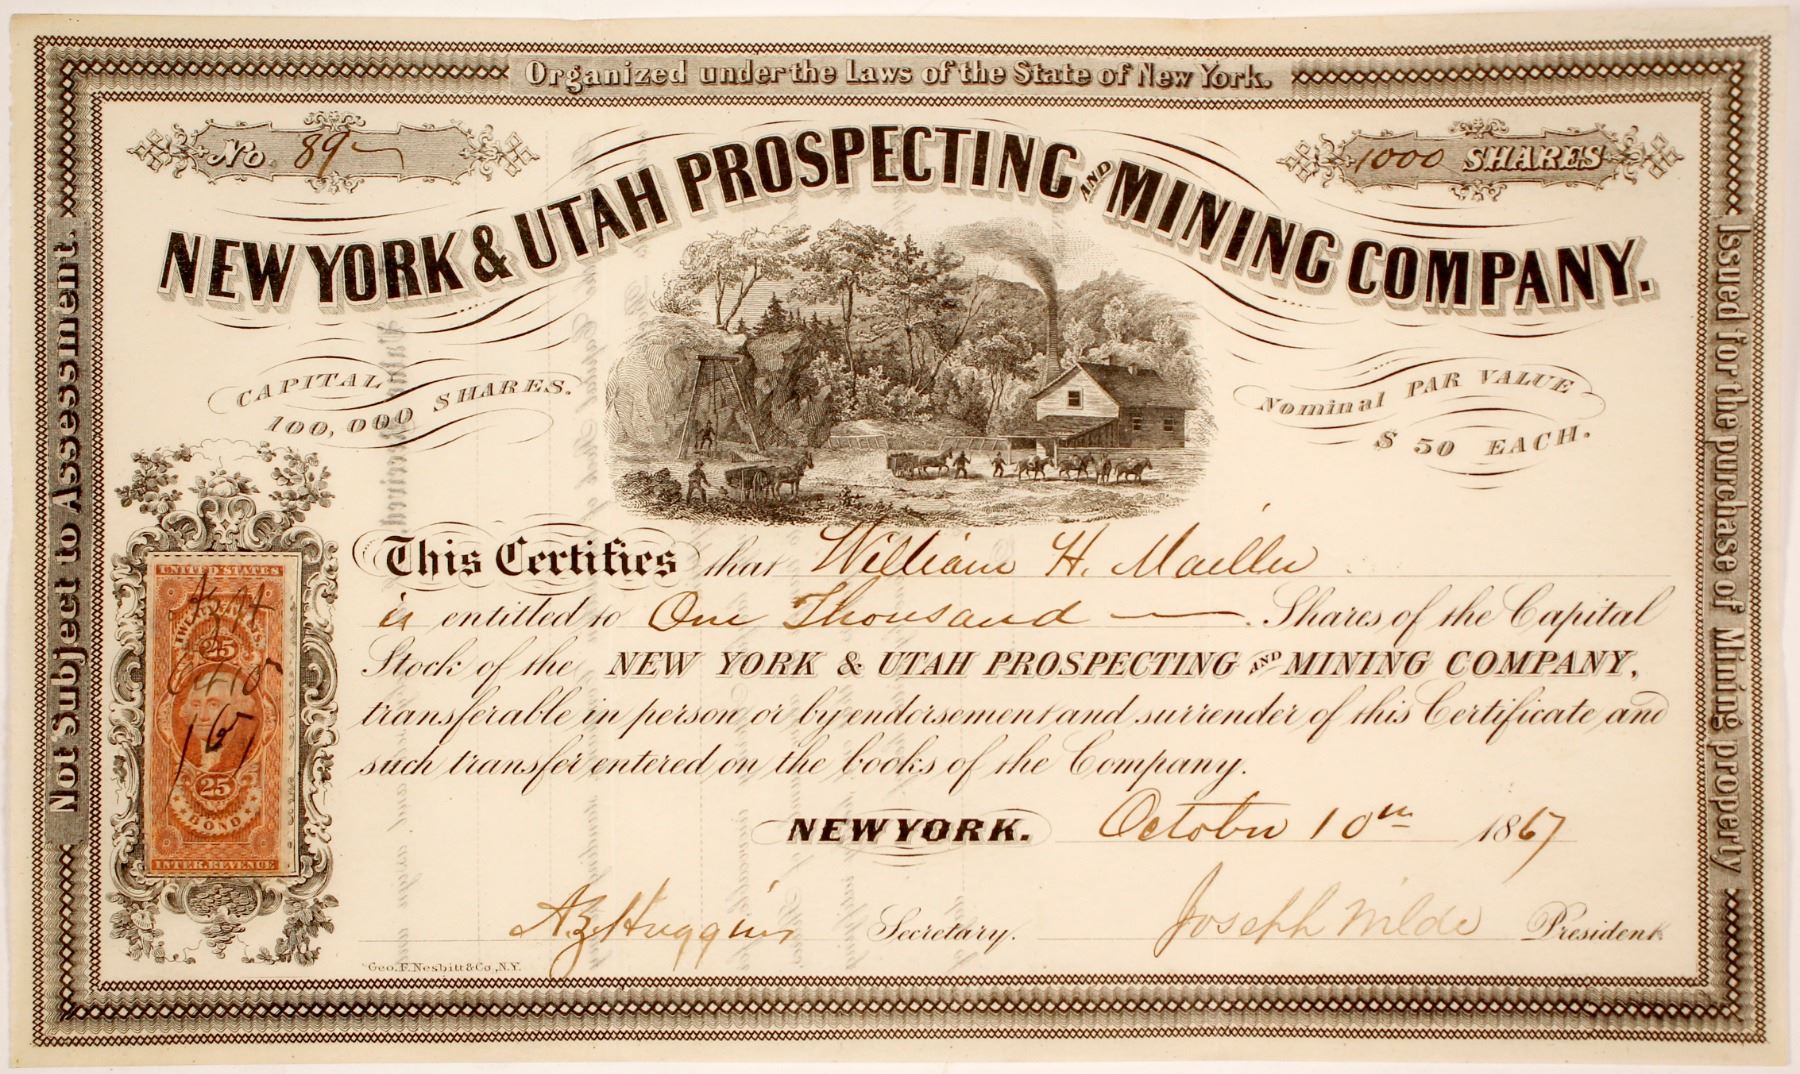 Organized under the Laws of the State of New York.
No. 89
1000 SHARES
NEW YORK & UTAH PROSPECTING AND MINING COMPANY.
CAPITAL
100,000 SHARES.
Nominal PAR VALUE
$ 50 EACH.
Not Subject to Assessment.
Issued for the purchase of Mining property
This Certifies that William H. Mailler
is entitled to One Thousand — Shares of the Capital
Stock of the NEW YORK & UTAH PROSPECTING AND MINING COMPANY,
transferable in person or by endorsement and surrender of this Certificate and
such transfer entered on the books of the Company.
NEW YORK. October 10th 1867
Huggins Secretary.
Joseph Wilde President
Geo. F. Nesbitt & Co., N.Y.
UNITED STATES
25
Oct 10
25
BOND
INTER. REVENUE